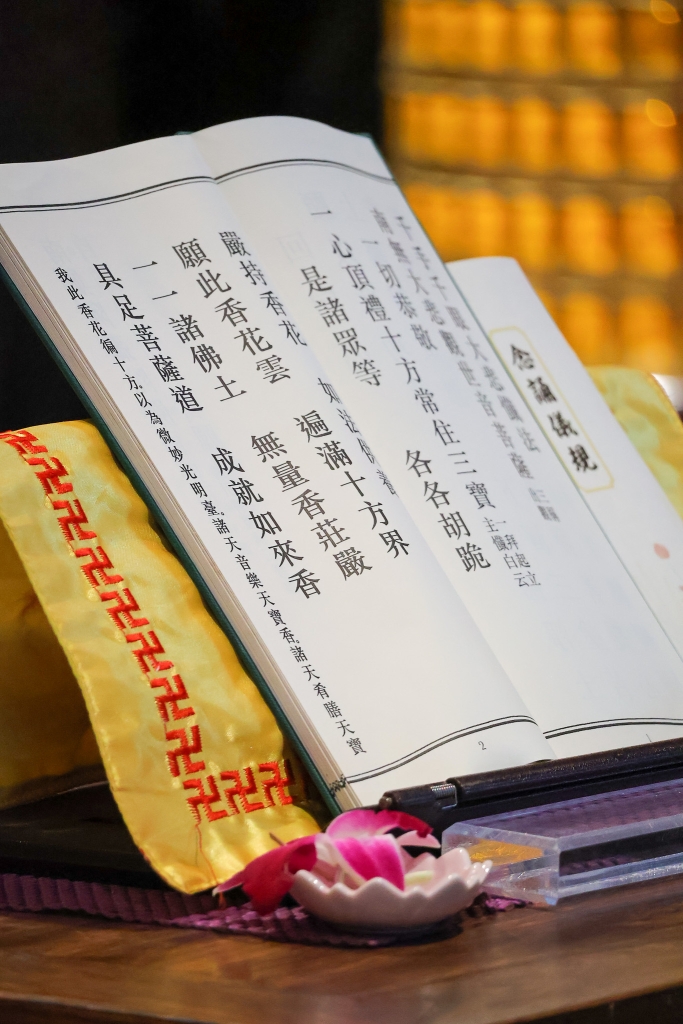 念誦儀規
千手千眼大悲懺法
南無大悲觀世音菩薩
一切恭敬
一心頂禮十方常住三寶 一拜起立
主懺白云
是諸眾等 各各胡跪
嚴持香花 如法供養
願此香花雲 遍滿十方界
一一諸佛土 無量香莊嚴
具足菩薩道 成就如來香
我此香花徧十方。以為微妙光明臺。諸天音樂天寶香。諸天肴膳天寶
1
2